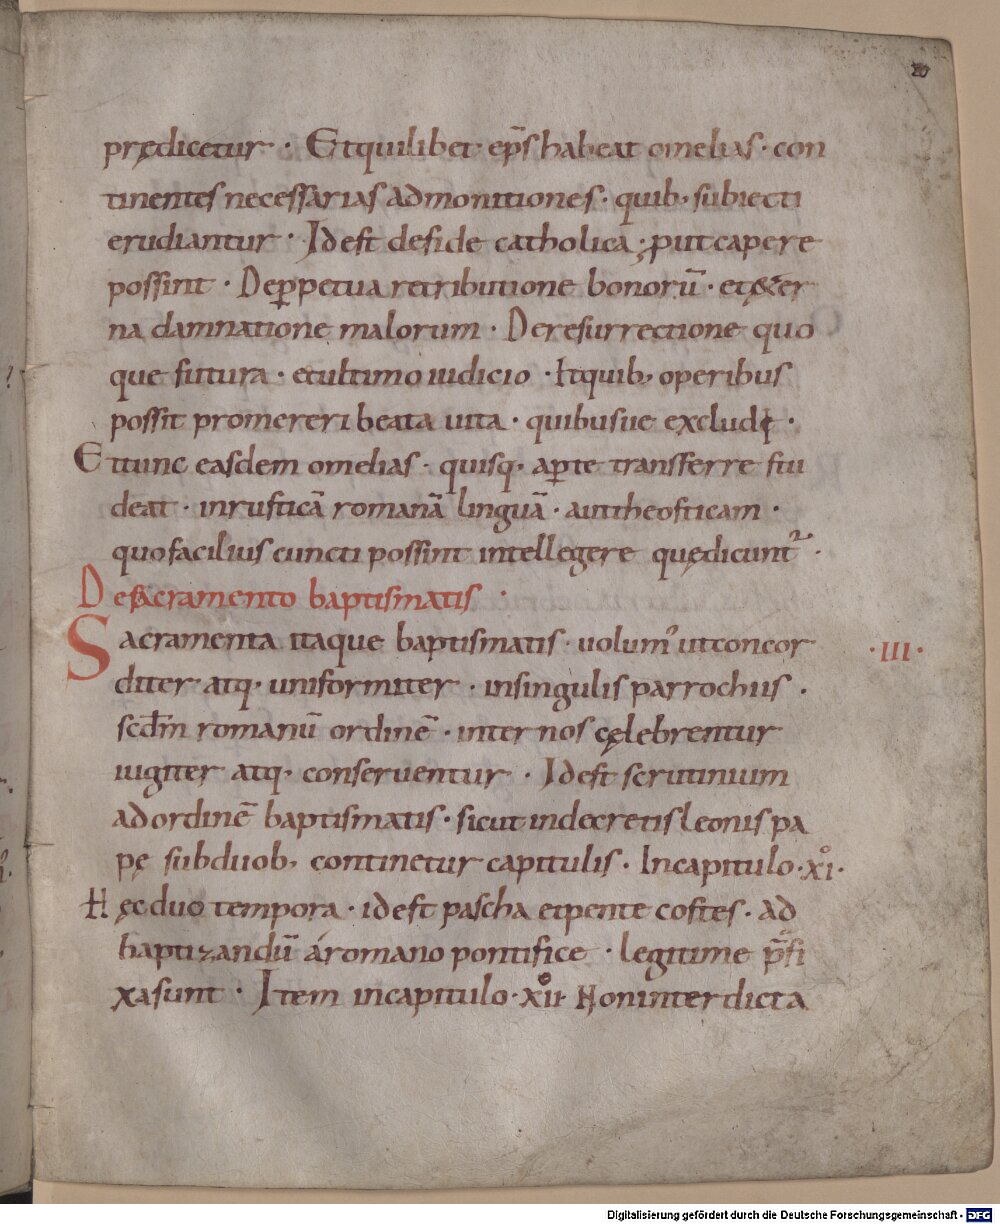 20
prędicetur · Et quilibet ep̅s habeat omelias · con
tinentes necessarias admonitiones · quib; subiecti
erudiantur · Id est de fide catholica · ꝓut capere
possint · De ꝑpetua retributione bonorū · et ęter
na damnatione malorum · De resurrectione quo
que futura · et ultimo iudicio · Et quib; operibus
possit promereri beata uita · quibusue excludi ·
Et tunc easdem omelias · quisq; aꝑte transferre stu
deat · in rusticā romanā linguā · aut theotiscam ·
quo facilius cuncti possint intellegere quę dicunt᷑ ·
De sacramento baptismatis ·
Sacramenta itaque baptismatis · uolum᾽ ut concor
·III·
diter atq; uniformiter · in singulis parrochiis ·
scd̅m romanū ordinē · inter nos cęlebrentur
iugiter atq; conseruentur · Id est scrutinium
ad ordinē baptismatis · sicut in decretis leonis pa
pę sub duob; continetur capitulis · In capitulo · xi̊ ·
Hęc duo tempora · id est pascha et pente costes · ad
baptizandū á romano pontifice · legitime p̅fi
xa sunt · Item in capitulo · xii̊ · Non interdicta
Digitalisierung gefördert durch die Deutsche Forschungsgemeinschaft - DFG